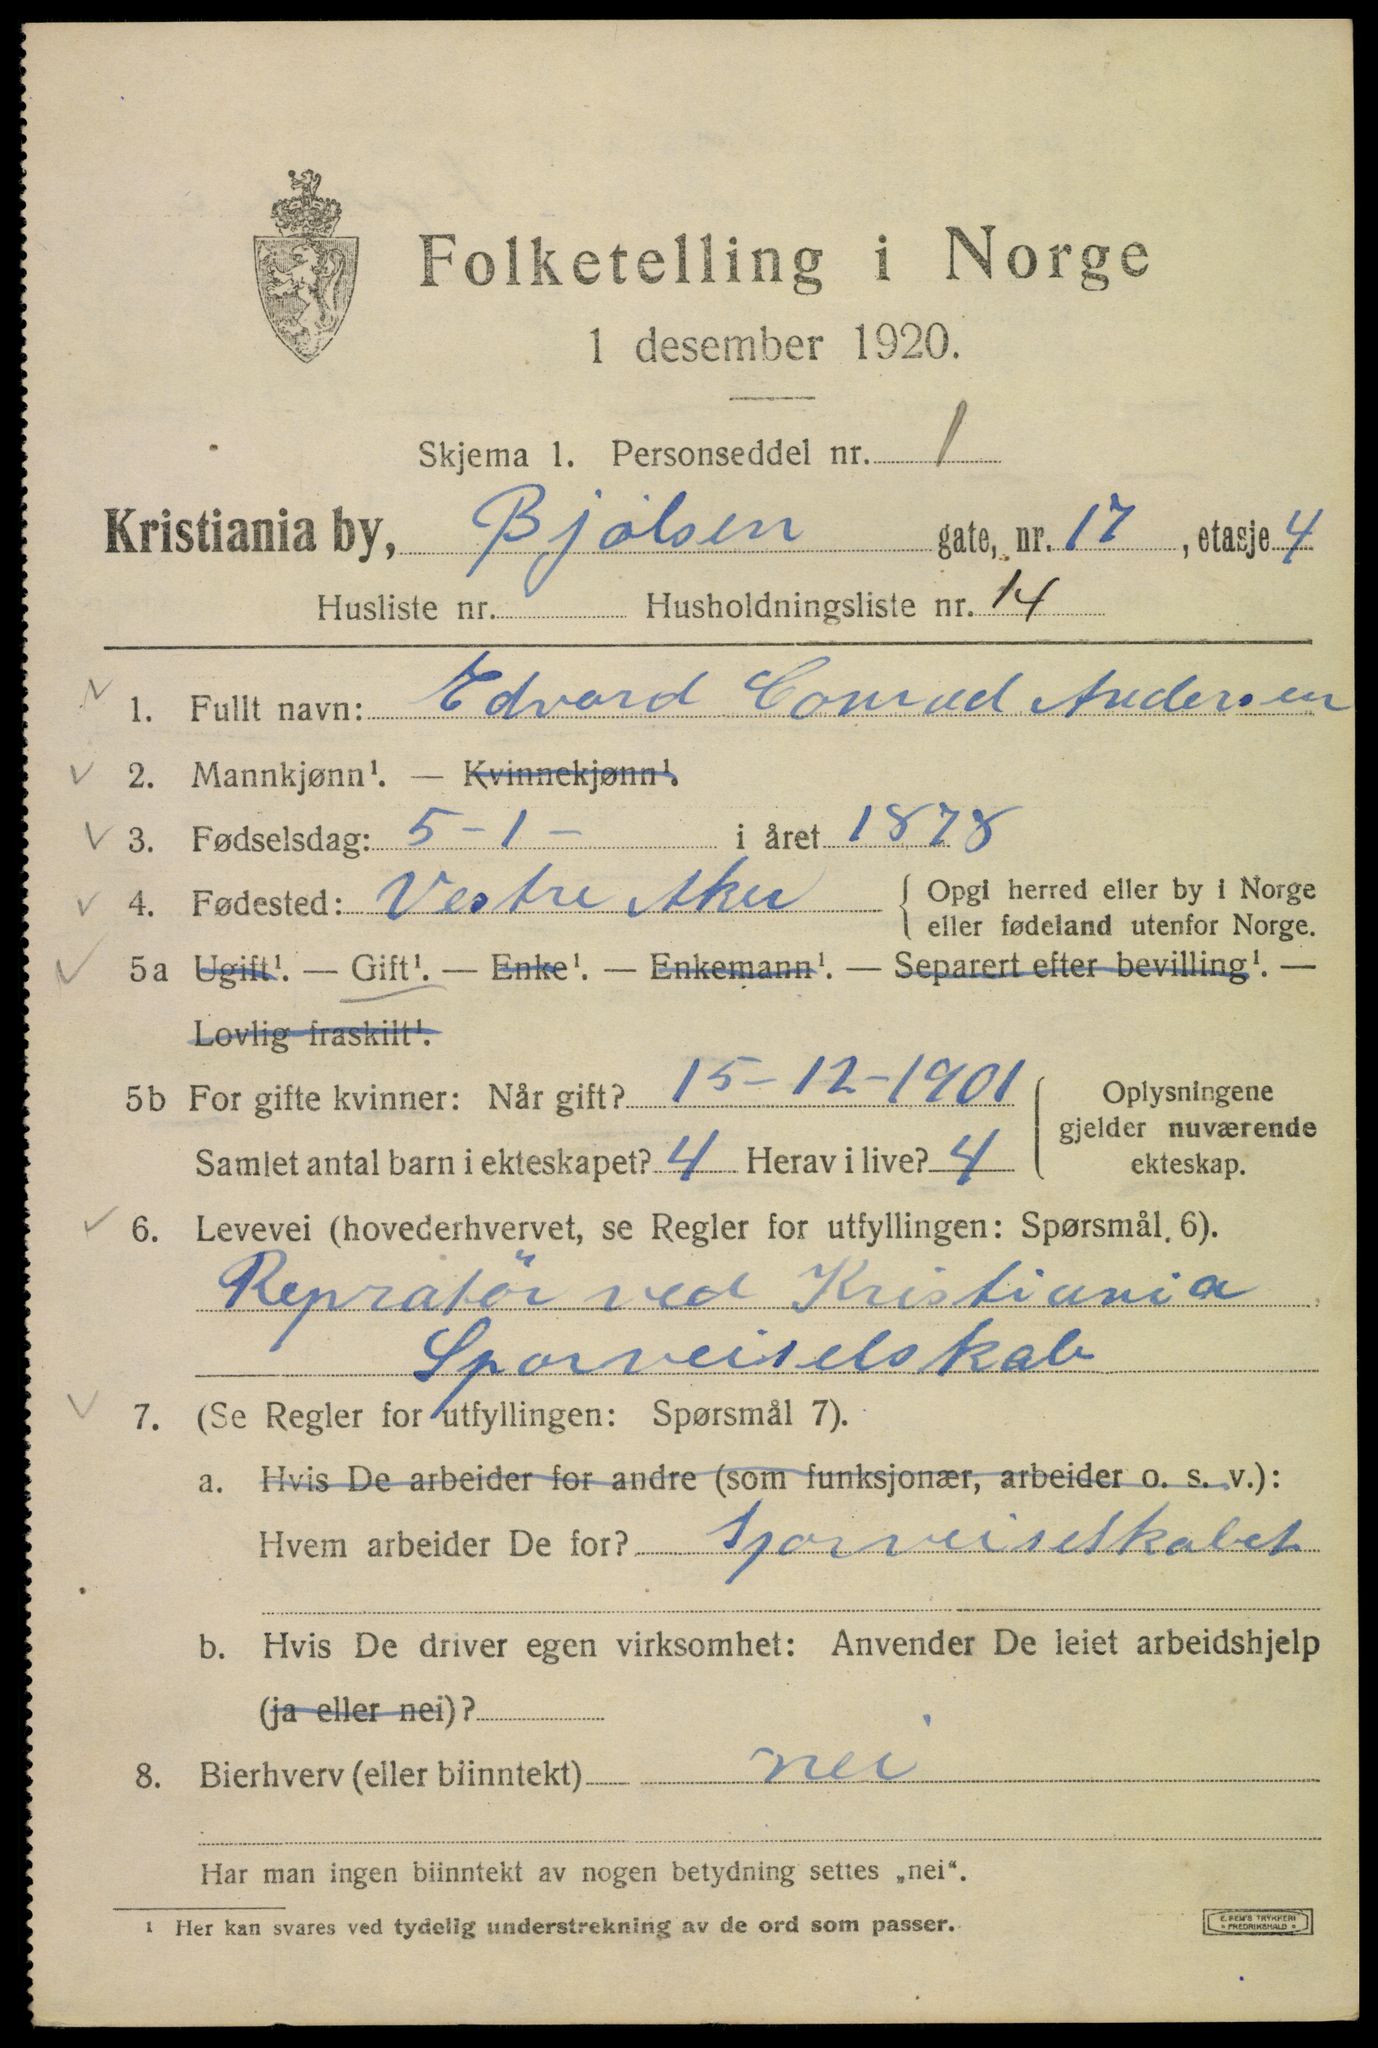 Folketelling i Norge
1 desember 1920.
Skjema 1. Personseddel nr. 1
Kristiania by, Bjølsen gate, nr. 17, etasje 4
Husliste nr. Husholdningsliste nr. 14
1. Fullt navn: Edvard Conrad Andersen
2. Mannkjønn¹. — Kvinnekjønn¹.
3. Fødselsdag: 5-1- i året 1878
4. Fødested: Vestre Aker { Opgi herred eller by i Norge
eller fødeland utenfor Norge.
5a Ugift¹. — Gift¹. — Enke¹. — Enkemann¹. — Separert efter bevilling¹. —
Lovlig fraskilt¹.
5b For gifte kvinner: Når gift? 15-12-1901
Samlet antal barn i ekteskapet? 4 Herav i live? 4
Oplysningene
gjelder nuværende
ekteskap.
6. Levevei (hovederhvervet, se Regler for utfyllingen: Spørsmål 6).
Repratör ved Kristiania
Sporveiselskab
7. (Se Regler for utfyllingen: Spørsmål 7).
a. Hvis De arbeider for andre (som funksjonær, arbeider o. s. v.):
Hvem arbeider De for? Sporveiselskabet
b. Hvis De driver egen virksomhet: Anvender De leiet arbeidshjelp
(ja eller nei)?
8. Bierhverv (eller biinntekt) nei
Har man ingen biinntekt av nogen betydning settes „nei“.
¹ Her kan svares ved tydelig understrekning av de ord som passer.
E. SEM'S TRYKKERI
FREDRIKSHALD